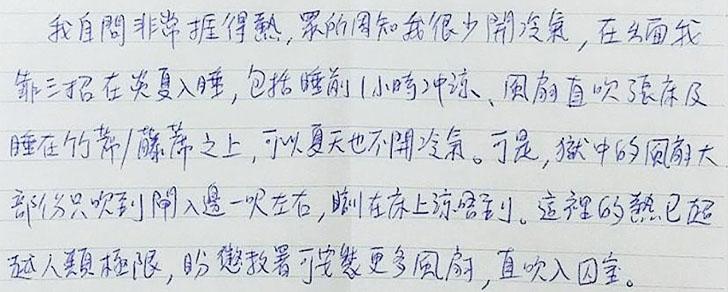 我自問非常捱得熱，眾所周知我很少開冷氣，在出面我
靠三招在炎夏入睡，包括睡前1小時沖涼、風扇直吹張床及
睡在竹蓆/藤蓆之上，可以夏天也不開冷氣。可是，獄中的風扇大
部份只吹到閘入邊一呎左右，瞓在床上涼唔到。這裡的熱已超
越人類極限，盼懲教署可安裝更多風扇，直吹入囚室。